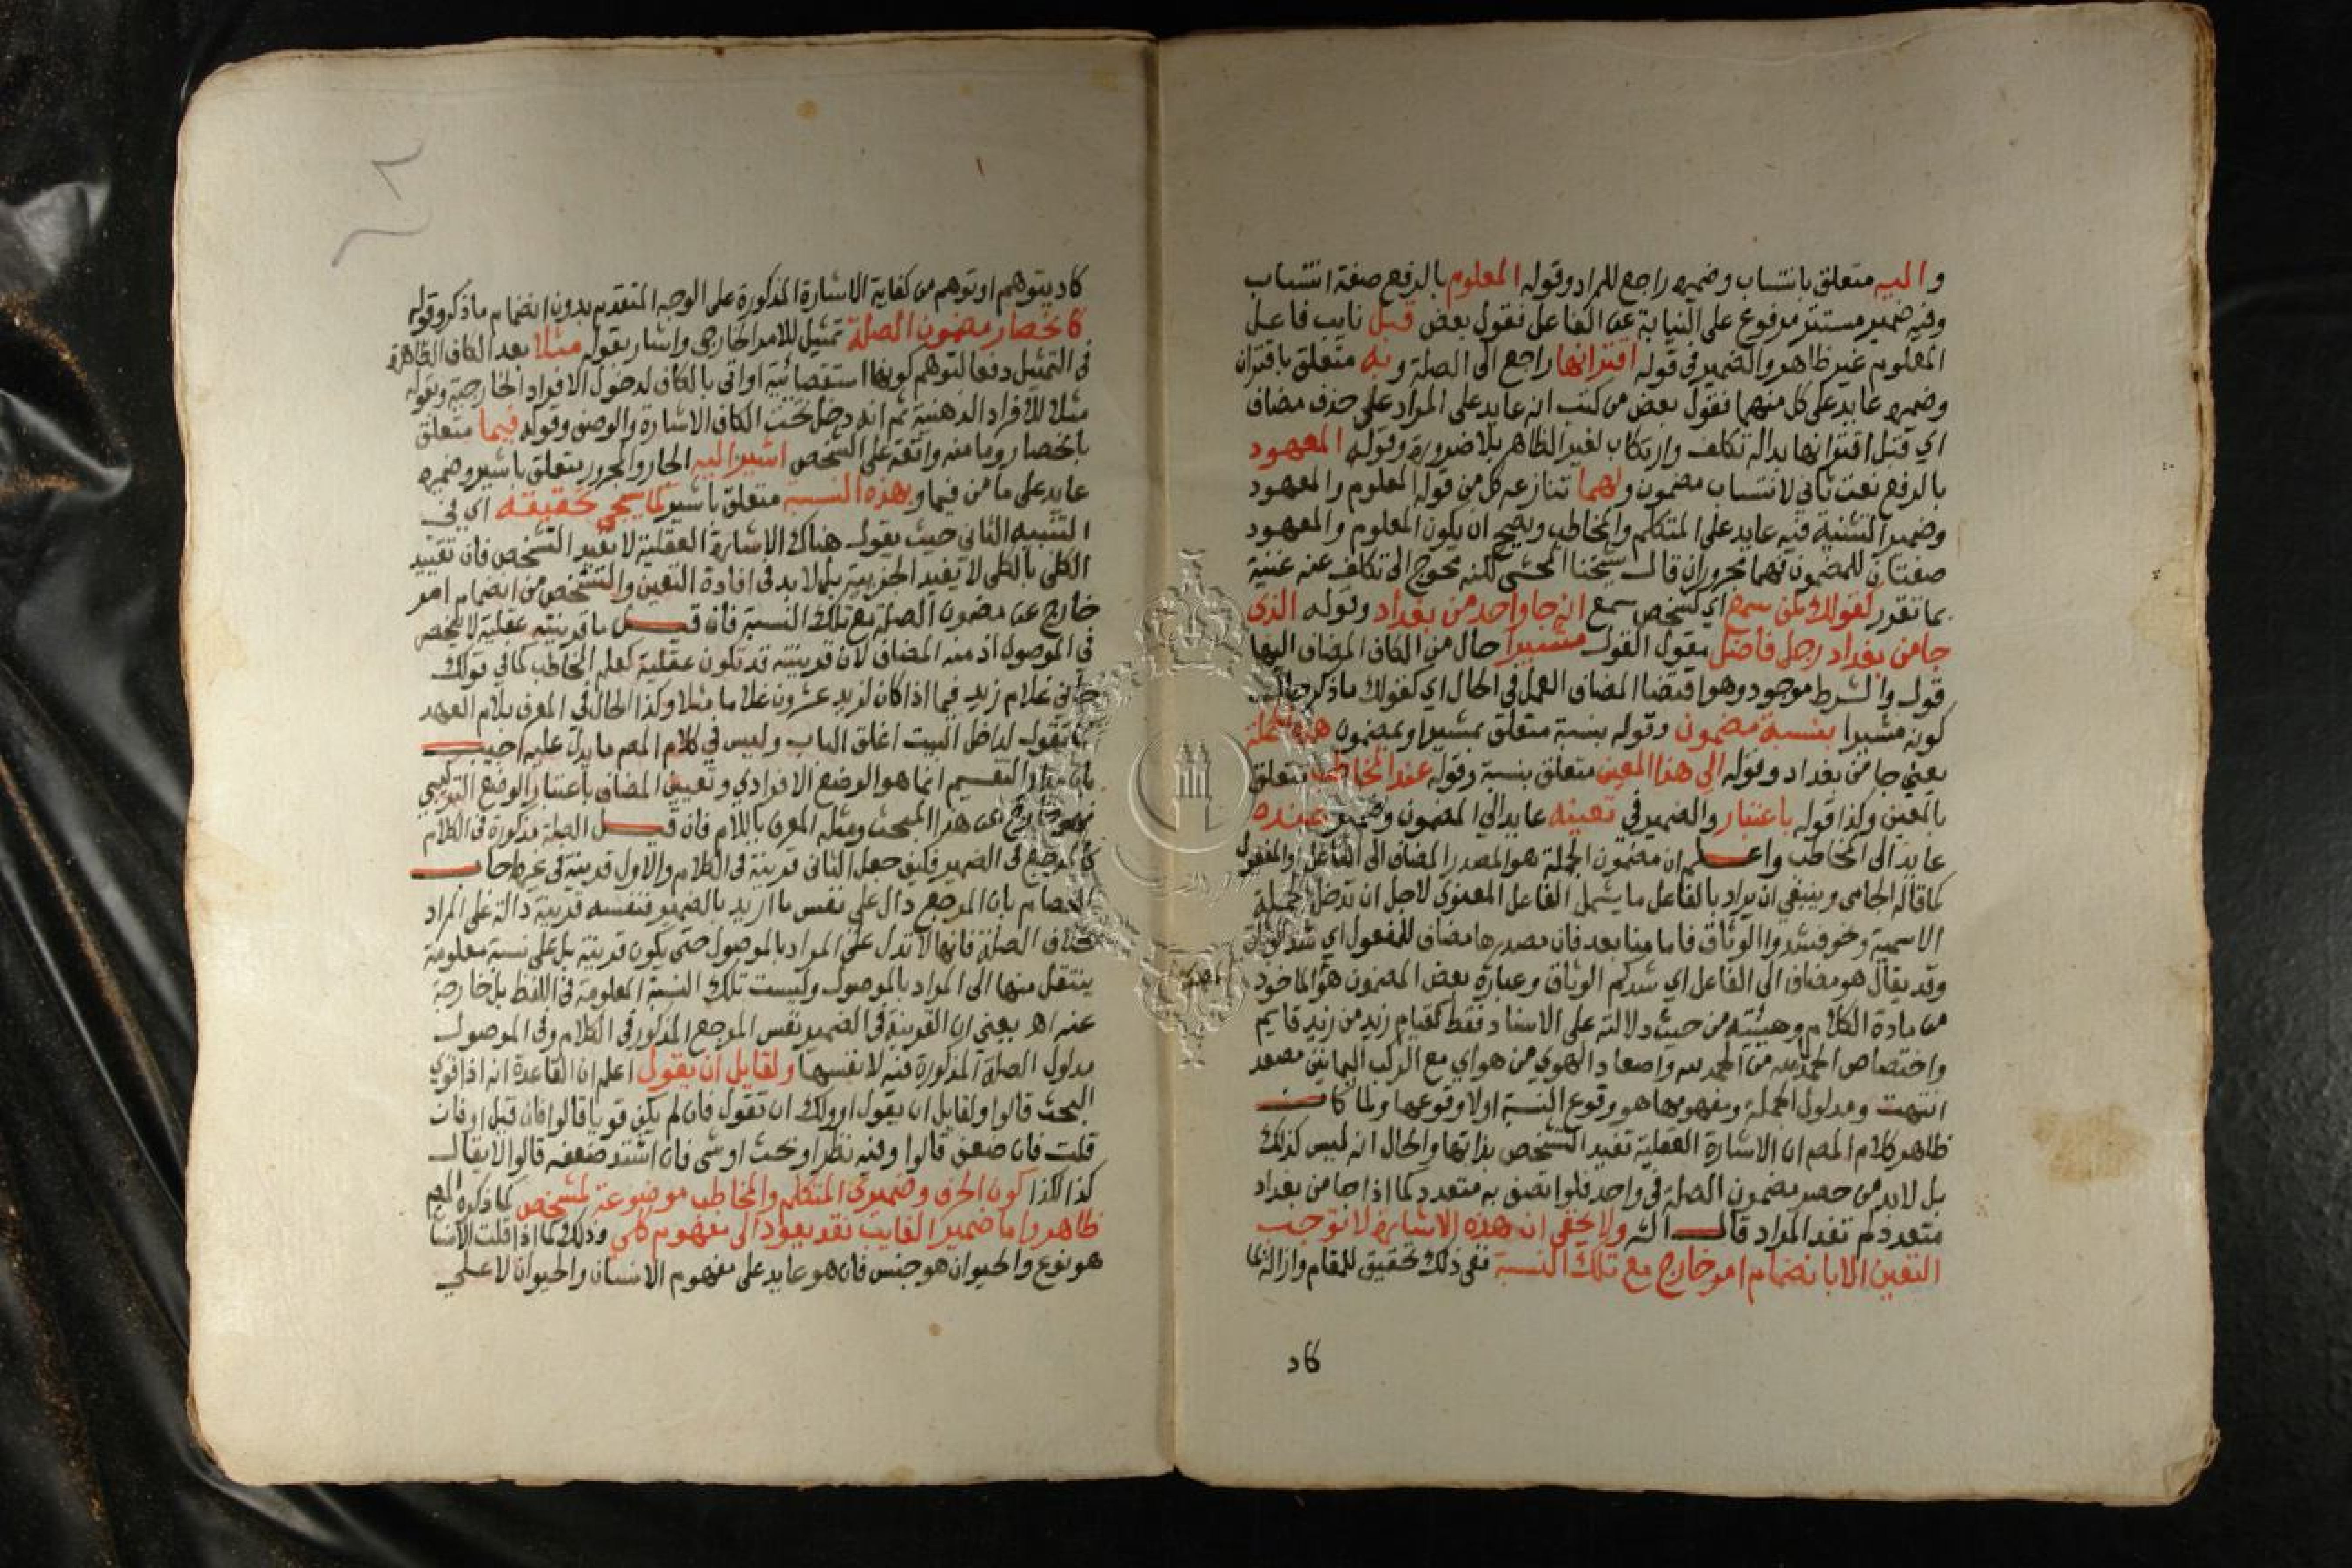 واليه متعلق بانتساب وضميره راجع للمراد وقوله المعلوم بالرفع صفة انتساب
وفيه ضمير مستتر مرفوع على النيابة عن الفاعل فقول بعض قبل نايب فاعل
المعلوم غير ظاهر والضمير في قوله اقترانها راجع الى الصلة وبه متعلق باقتران
وضميره عايد على كل منهما فقول بعض من كتب انه عايد على المراد على حذف مضاف
اي قبل اقترانها بداله تكلف وارتكاب لغير الظاهر بلا ضرورة وقوله المعهود
بالرفع نعت ثاني لانتساب مضمون ولهما تنازعه كل من قوله المعلوم والمعهود
وضمير التثنية فيه عايد على المتكلم والمخاطب ويصح ان يكون المعلوم والمعهود
صفتان للمضمون فهما مجروران قال شيخنا المحشي لكنه محوج الى تكلف عنه غنية
بما تقرر كقولك لمن سمع اي لشخص سمع انه جا واحد من بغداد وقوله الذي
جا من بغداد رجل فاضل مقول القول مشيرا حال من الكاف المضاف اليها
قول والشرط موجود وهو اقتضا المضاف العمل في الحال اي كقولك ما ذكر حال
كونه مشيرا بنسبة مضمون وقوله بنسبة متعلق بمشيرا وبمضمون هذه الجملة
يعني جا من بغداد وقوله الى هذا المعين متعلق بنسبة وقوله عند المخاطب متعلق
بالمعين وكذا قوله باعتبار والضمير في تعينه عايد الي المضمون وضمير عنده
عايد الى المخاطب واعلم ان مضمون الجملة هو المصدر المضاف الى الفاعل او المفعول
كما قاله الجامي وينبغي ان يراد بالفاعل ما يشمل الفاعل المعنوي لاجل ان تدخل الجملة
الاسمية ونحو فشدوا الوثاق فاما منا بعد فان مصدرها مضاف للمفعول اي شد الوثاق
وقد يقال هو مضاف الى الفاعل اي شدكم الوثاق وعبارة بعض المضمون هو الماخوذ
من مادة الكلام وهيئته من حيث دلالته على الاسناد فقط كقيام زيد من زيد قايم
واختصاص الحمد لله من الحمد لله واصعاد الهوي من هواي مع الركب اليمانين مصعد
انتهت ومدلول الجملة ومفهومها هو وقوع النسبة اولا وقوعها ولما كان
ظاهر كلام المصم ان الاشارة العقلية تفيد التشخص بذاتها والحال انه ليس كذلك
بل لابد من حصر مضمون الصلة في واحد فلو اتصف به متعدد كما اذا جا من بغداد
متعدد لم تفد المراد قال الشه ولا يخفي ان هذه الاشارة لا توجب
التعين الا بانضمام امر خارج مع تلك النسبة ففي ذلك تحقيق للمقام وازالة لما
كاد
كاد يتوهم او توهم من كفاية الاشارة المذكورة على الوجه المتقدم بدون انضمام ما ذكر وقوله
كانحصار مضمون الصلة تمثيل للامر الخارجي واشار بقوله مثلا بعد الكاف الظاهرة
في التمثيل دفعا لتوهم كونها استقصائية او اتى بالكاف لدخول الافراد الخارجية وبقوله
مثلا للافراد الذهنية ثم انه دخل تحت الكاف الاشارة والوصف وقوله فيما متعلق
بانحصار وما منه واقعة على الشخص اشير اليه الجار والمجرور متعلق باشير وضميره
عايد على ما من فيما وبهذه النسبة متعلق باشير لما سيجي تحقيقه اي في
التنبيه الثاني حيث يقول هناك الاشارة العقلية لا تفيد التشخص فان تقييد
الكلي بالكلي لا يفيد الجزيية بل لابد في افادة التعين والتشخص من انضمام امر
خارج عن مضمون الصلة مع تلك النسبة فان قيل ما قرينته عقلية لا ينحصر
في الموصول اذ منه المضاف لان قرينته قد تكون عقلية كعلم المخاطب كما في قولك
جاني غلام زيد فيما اذا كان لزيد عشرون غلاما مثلا وكذا الحال في المعرف بلام العهد
كما تقول لداخل البيت اغلق الباب وليس في كلام المصم ما يدل عليه اجيب
بان هذا التقسيم انما هو الوضع الافرادي وتعيين المضاف باعتبار الوضع التركيبي
فهو خارج عن هذا المبحث ومثله المعرف باللام فان قيل الصلة مذكورة في الكلام
كالمرجع في الضمير فكيف جعل الثاني قرينة في الكلام والاول قرينة في غيره اجاب
العصام بان المرجع دال على نفس ما اريد بالضمير فنفسه قرينة دالة على المراد
بخلاف الصلة فانها لا تدل على المراد بالموصول حتى يكون قرينة بل على نسبة معلومة
ينتقل منها الى المراد بالموصول وليست تلك النسبة المعلومة في اللفظ بل خارجة
عنه اهـ يعني ان القرينة في الضمير نفس المرجع المذكور في الكلام وفي الموصول
مدلول الصلة المذكورة فيه لا نفسها ولقايل ان يقول اعلم ان القاعدة انه اذا قوي
البحث قالوا ولقايل ان يقول او ولك ان تقول فان لم يكن قويا قالوا فان قيل او فان
قلت فان ضعف قالوا وفيه نظر او بحث او شي فان اشتد ضعفه قالوا لا يقال
كذا لكذا كون الحرف وضميري المتكلم والمخاطب موضوعة لمشخص كما ذكره المصم
ظاهر واما ضمير الغايب فقد يعود الى مفهوم كلي وذلك كما اذا قلت الانسان
هو نوع والحيوان هو جنس فان هو عايد على مفهوم الانسان والحيوان لا على